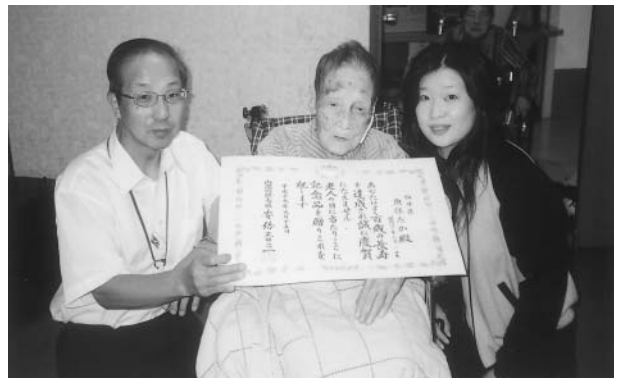 百歳の長寿
を達成され誠に慶賀
にたえません
老人の日に当たりここに
記念品を贈りこれを
祝します
平成十九年九月十五日
内閣総理大臣 安倍晋三